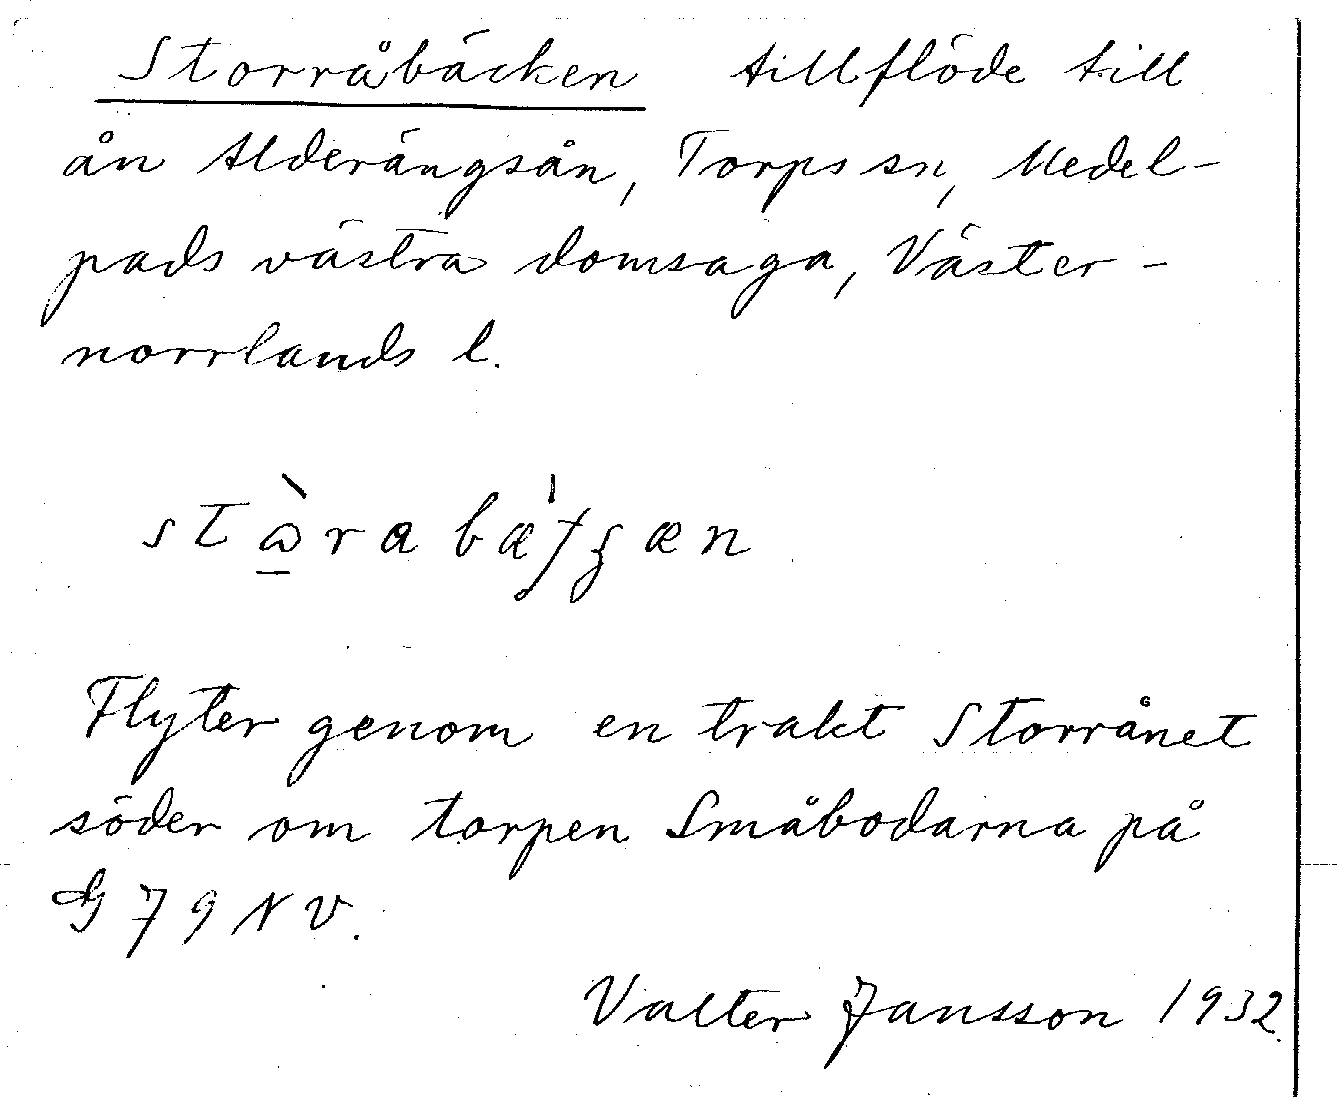 Storråbäcken tillflöde till
ån Alderängsån, Torps sn, Medel-
pads västra domsaga, Väster-
norrlands l.
Flyter genom en trakt Storrånet
söder om torpen Småbodarna på
G 79 NV.
Valter Jansson 1932.